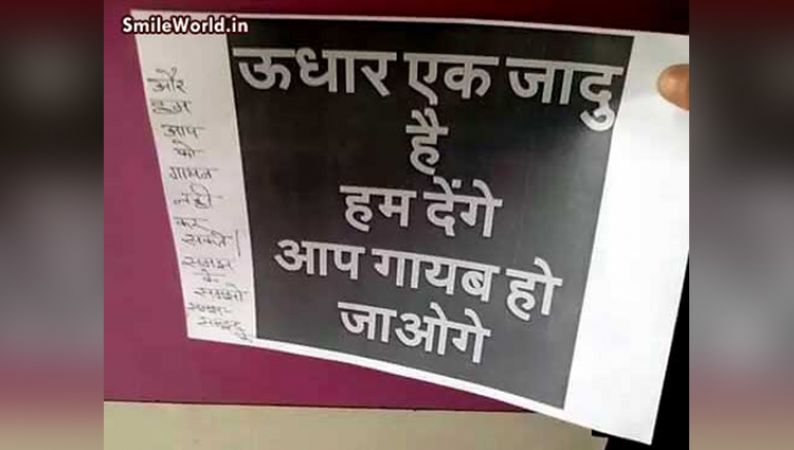 SmileWorld.in
ऊधार एक जादु
है
हम देंगे
आप गायब हो
जाओगे
और
हम
आप
को
गायब
नही
कर
सकते।
समझ
के
समझो